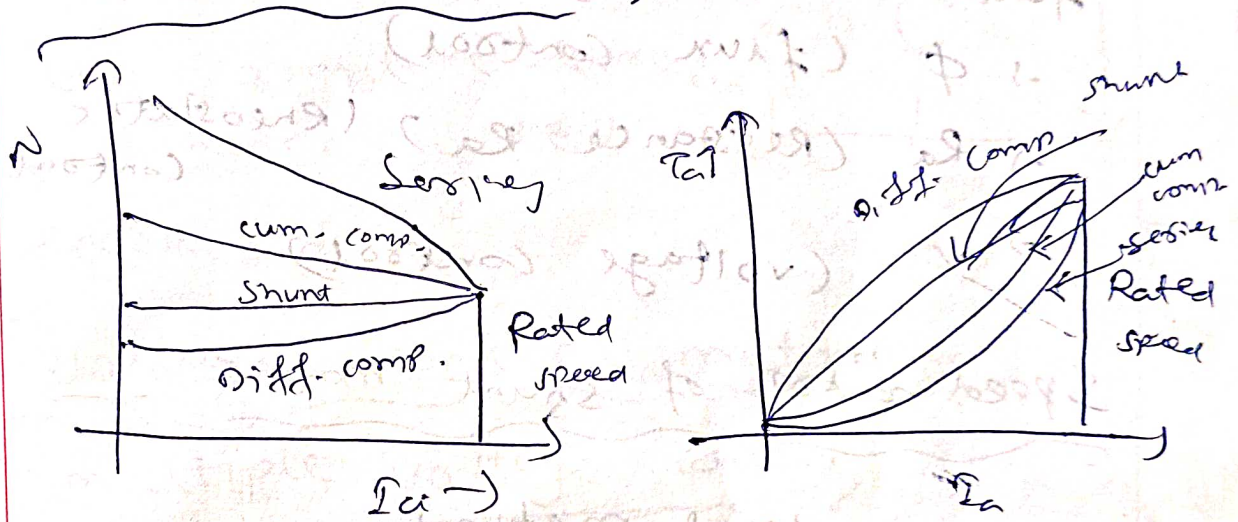 N
Series
cum. comp.
Shunt
Diff. comp.
Rated
speed
Ia →
Ta↑
Diff. comp
shunt
cum
comp
series
Rated
speed
Ia